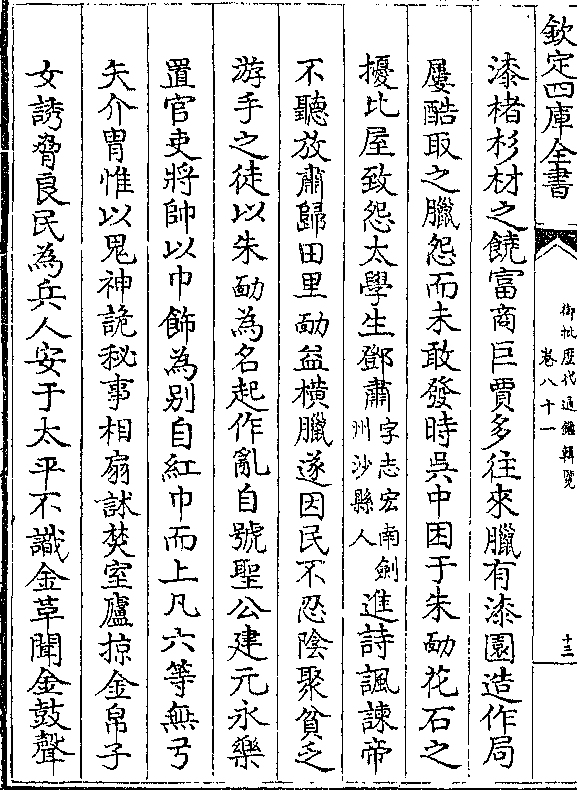 欽定四庫全書
御批歷代通鑑輯覽
卷八十一
十三
漆楮杉材之饒富商巨賈多往來臘有漆園造作局
屢酷取之臘怨而未敢發時吳中困于朱勔花石之
擾比屋致怨太學生鄧肅字志宏南劍州沙縣人進詩諷諫帝
不聽放肅歸田里勔益橫臘遂因民不忍陰聚貧乏
游手之徒以朱勔為名起作亂自號聖公建元永樂
置官吏將帥以巾飾為别自紅巾而上凡六等無弓
矢介胄惟以鬼神詭秘事相扇訹焚室廬掠金帛子
女誘脅良民為兵人安于太平不識金革聞金鼓聲